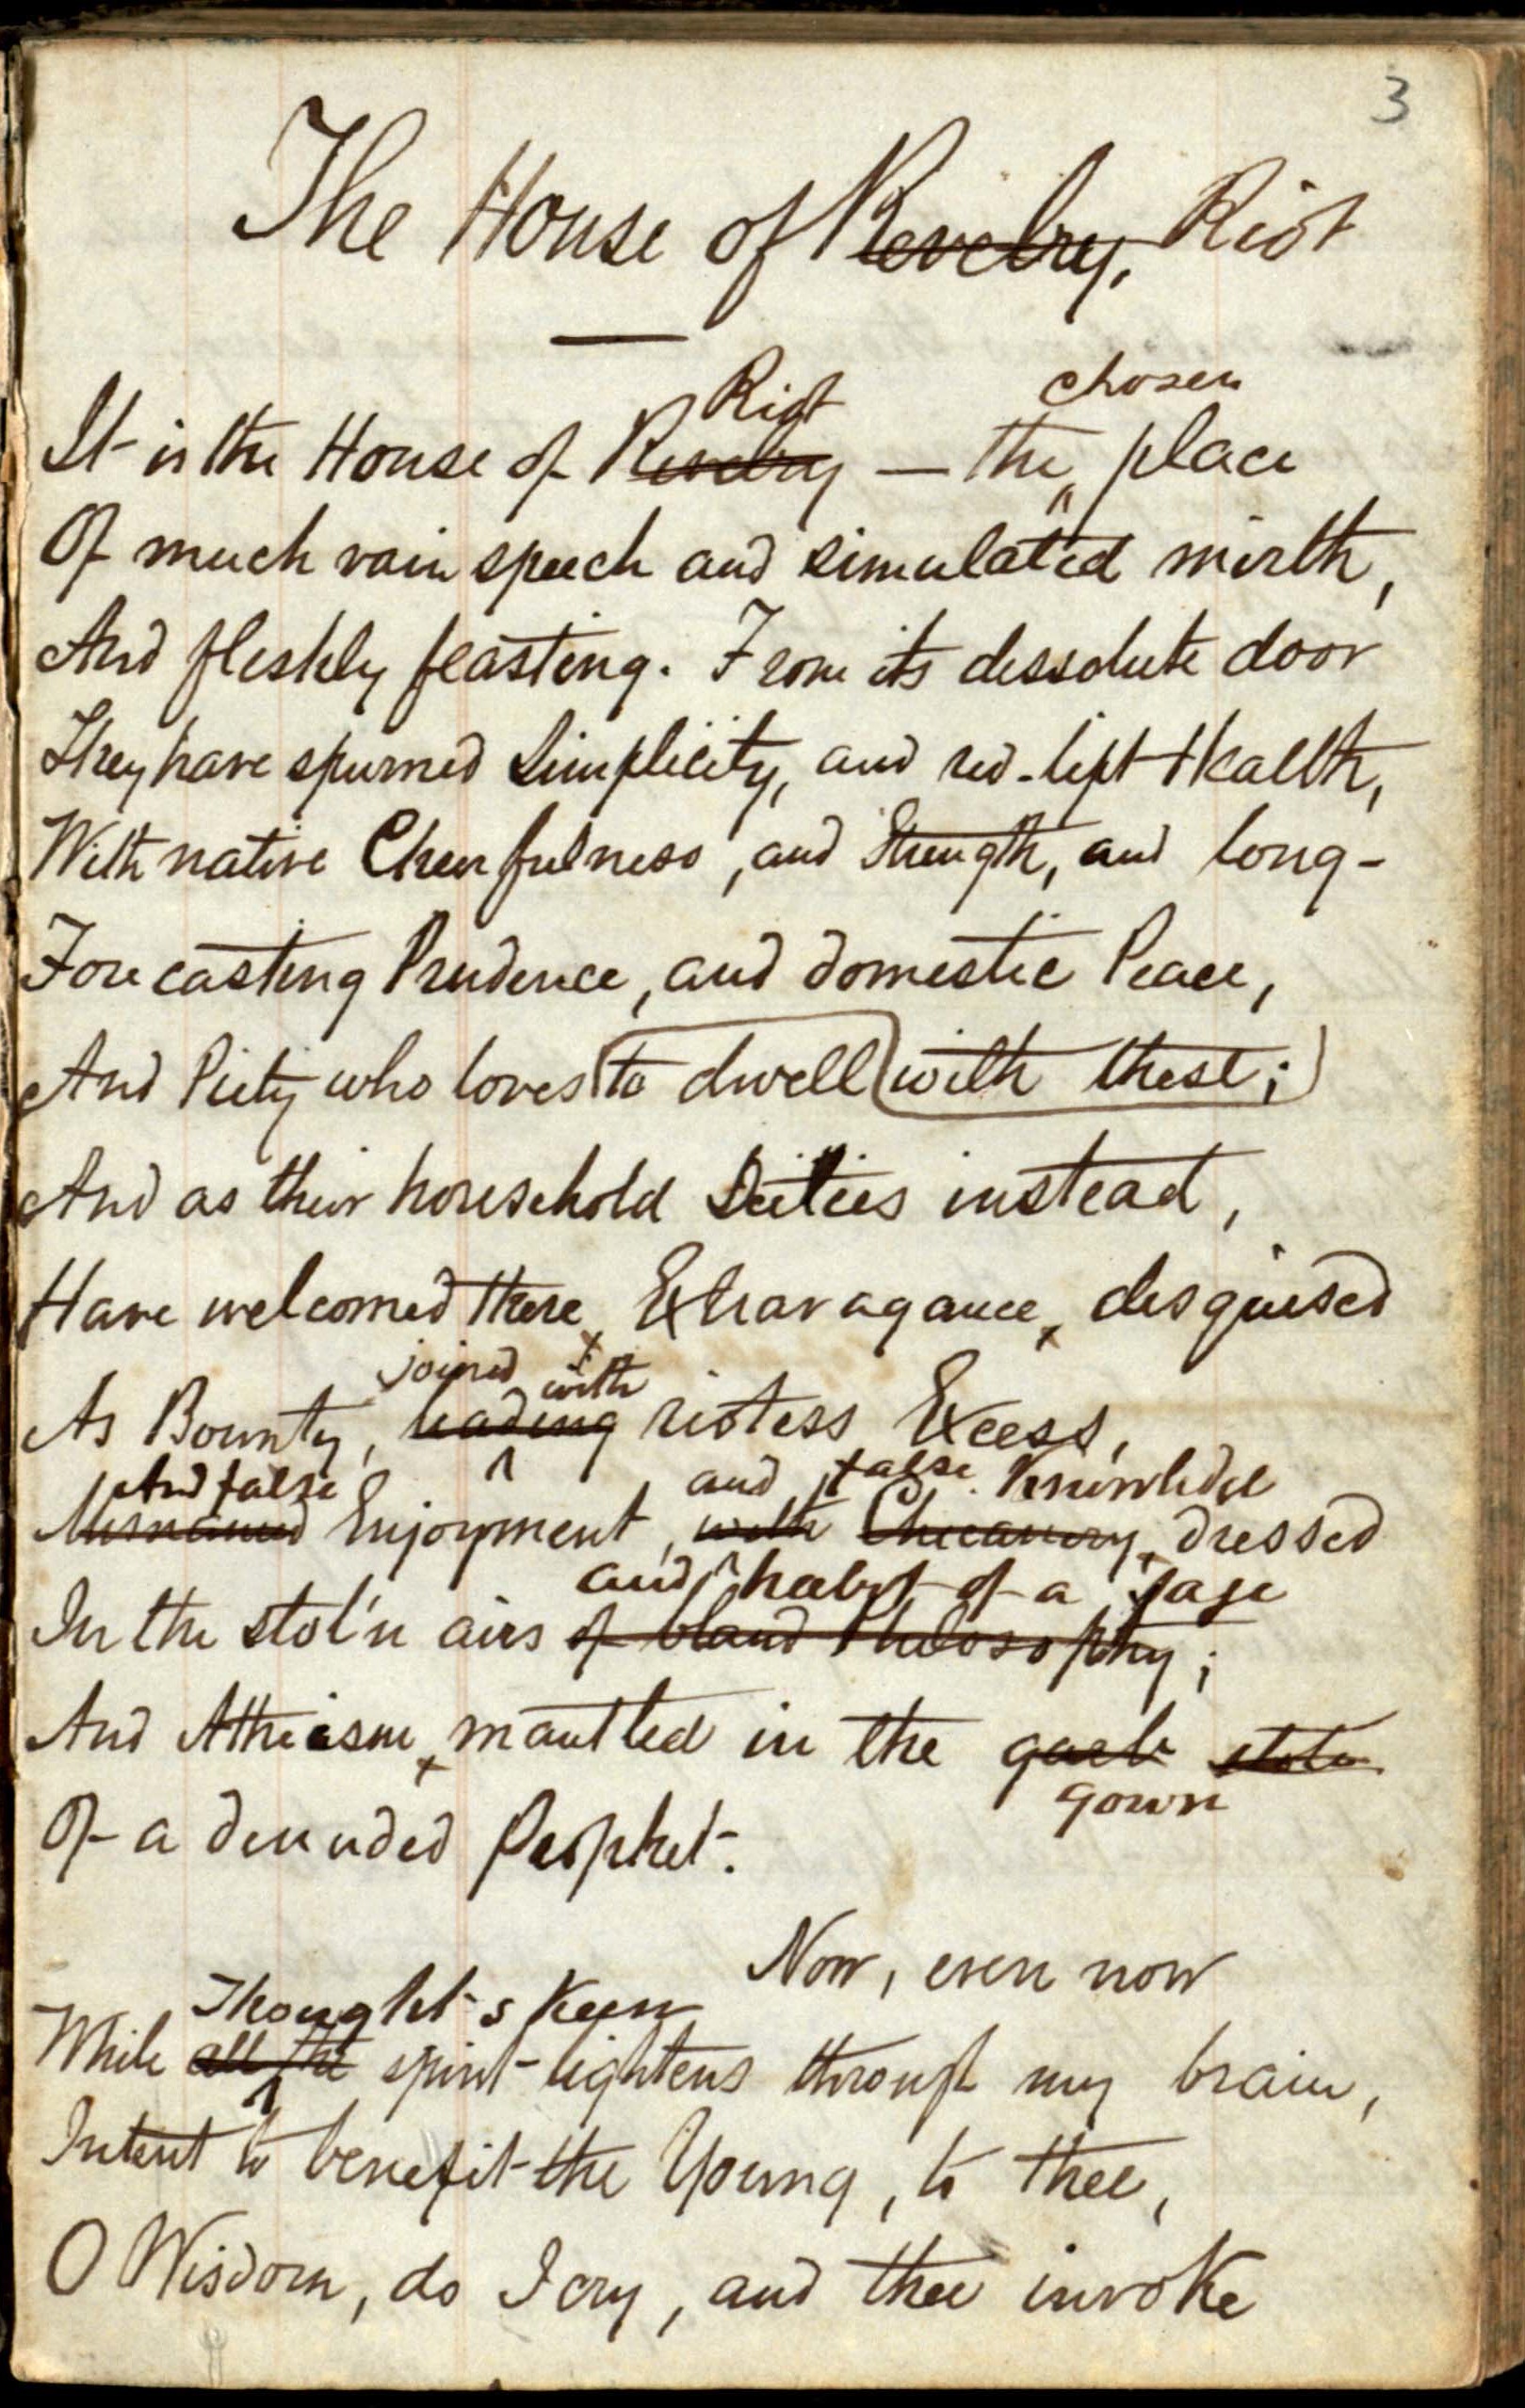 3
The House of Revelry, Riot
Riot chosen
It is the House of Revelry — the place
Of much vain speech and simulated mirth,
And fleshly feasting. From its dissolute door
They have spurned Simplicity, and red-lipt Health,
With native Cheerfulness, and Strength, and long-
Forecasting Prudence, and domestic Peace,
And Piety who loves to dwell with these;
And as their household Deities instead,
Have welcomed there Extravagance, disguised
joined with
As Bounty, leading riotess Excess,
And false and false Knowledge
Misnamed Enjoyment, with Chicanery, dressed
and habit of a sage
In the stol'n airs of bland Philosophy;
And Atheism, mantled in the garb stole
gown
Of a denuded Prophet.
Now, even now
Thought's keen
While all the spirit lightens through my brain,
Intent to benefit the Young, to thee,
O Wisdom, do I cry, and thee invoke